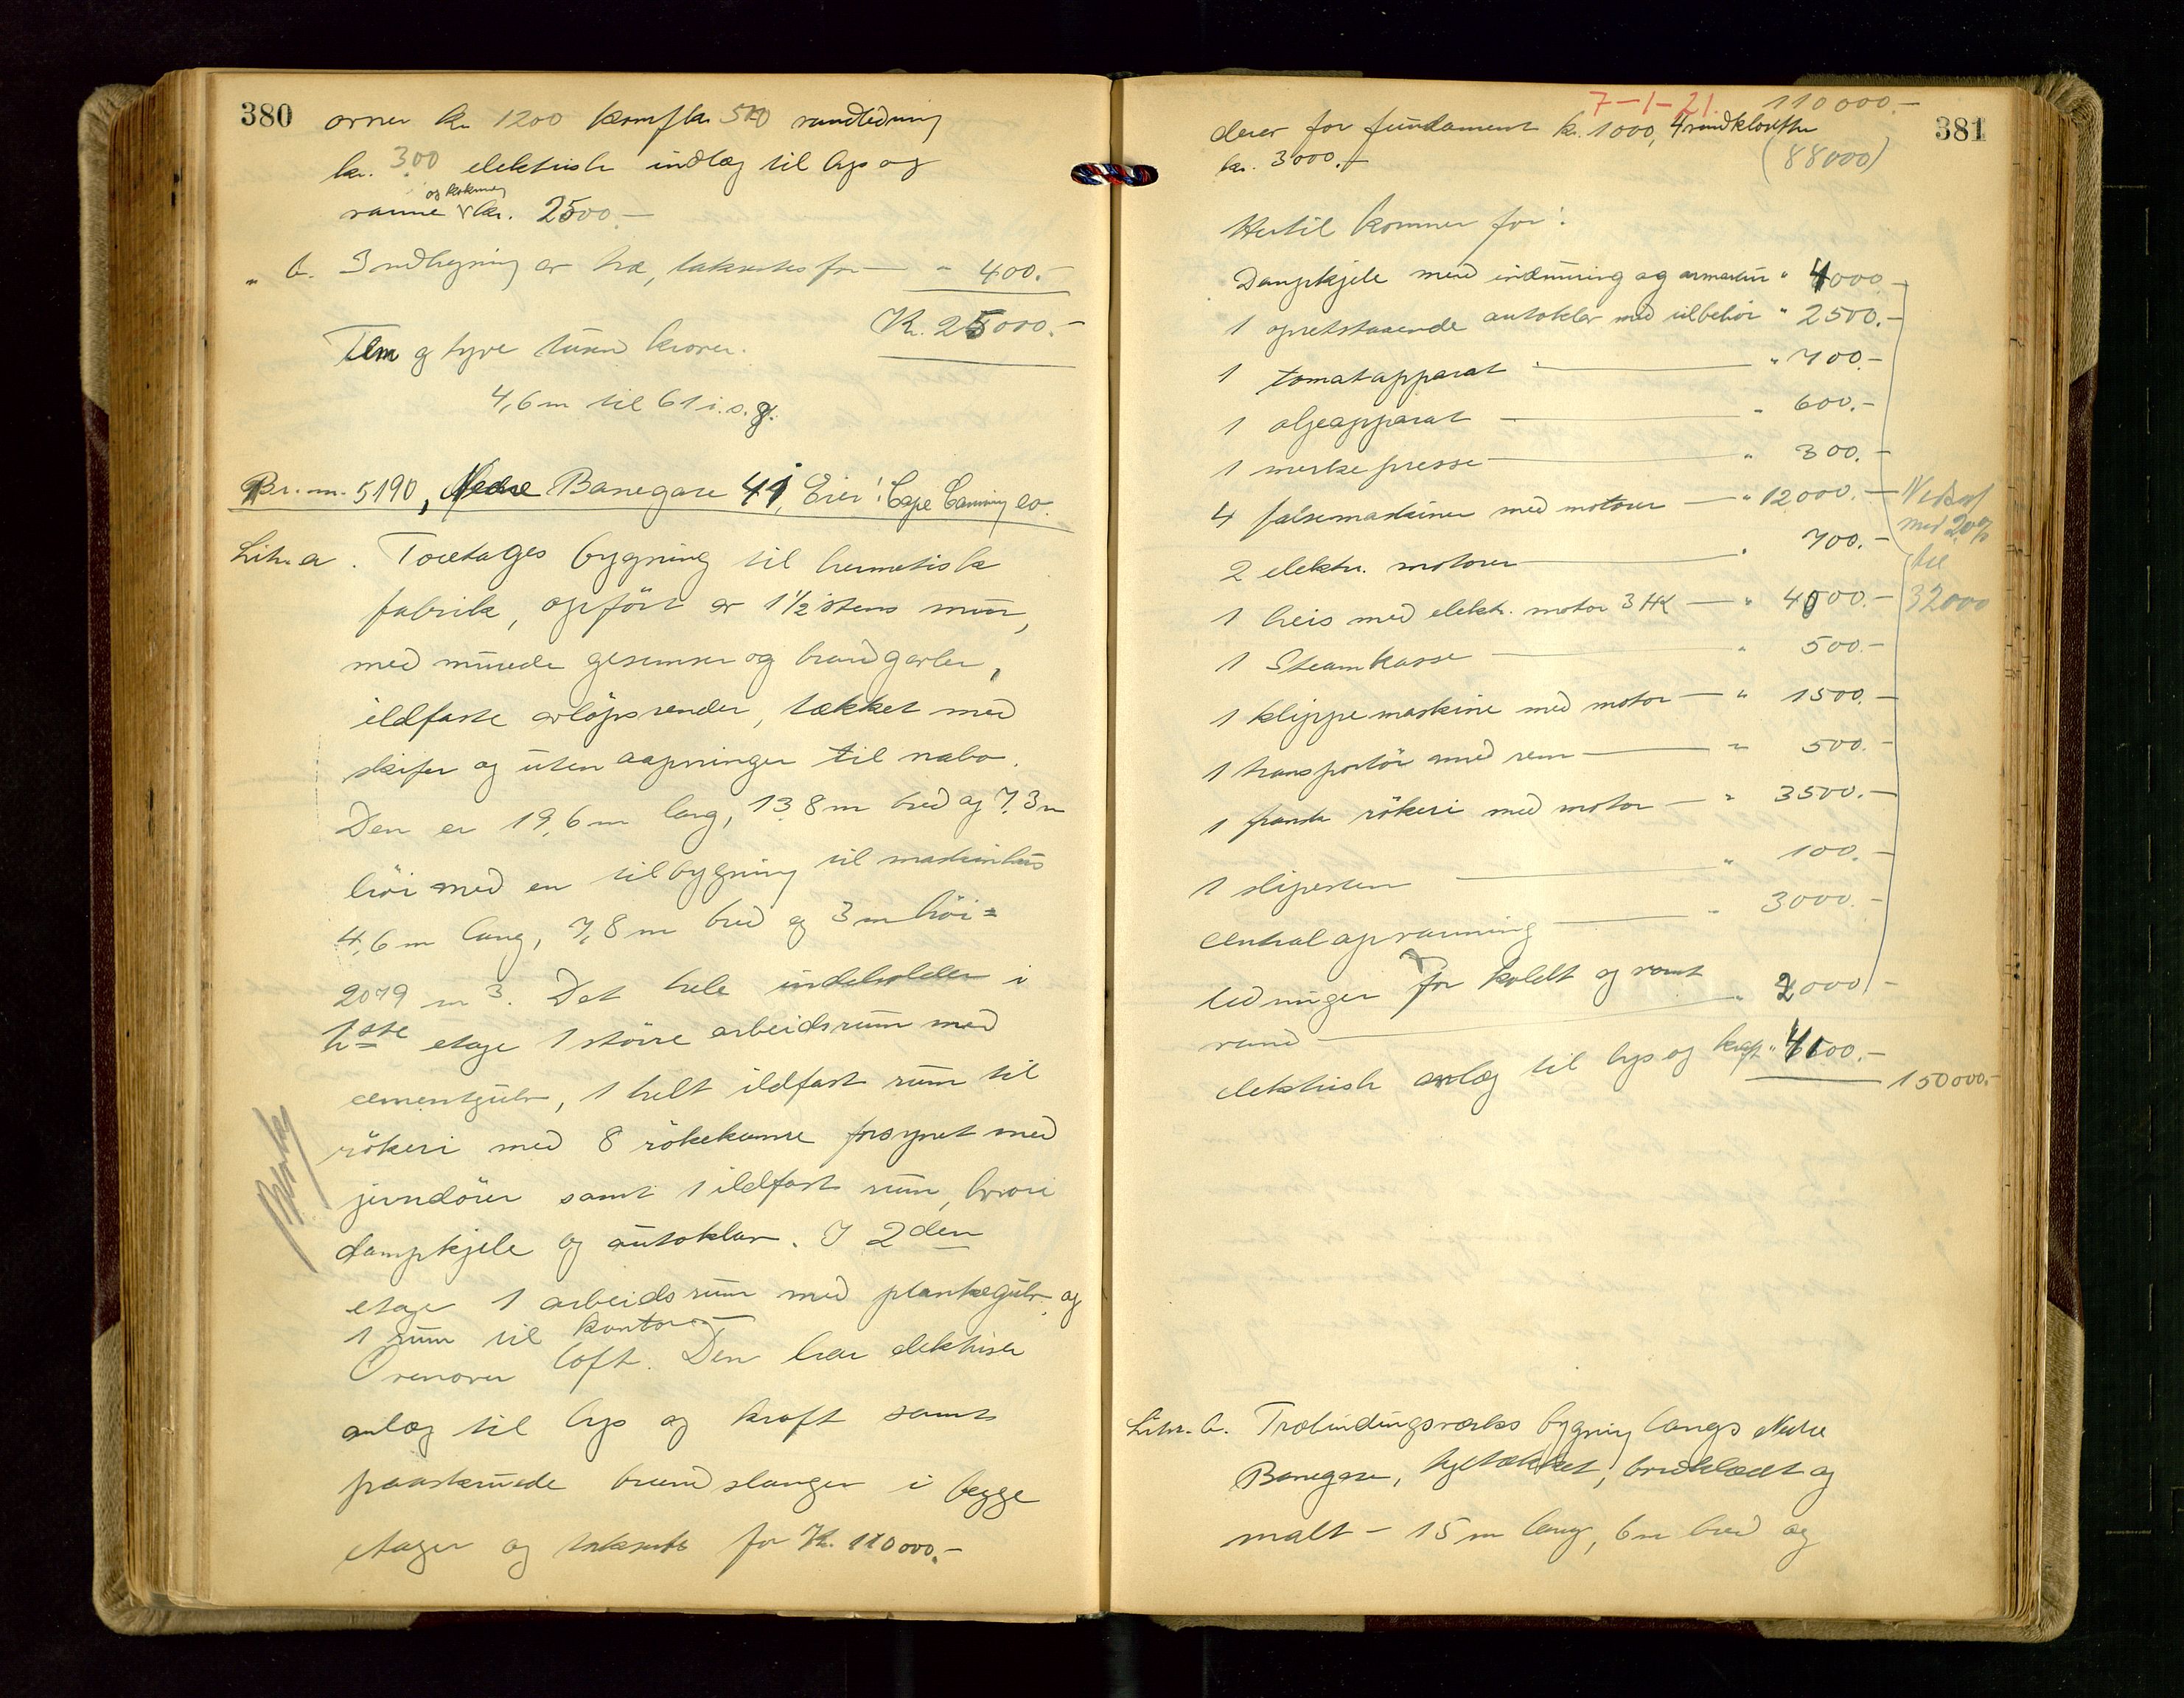 380
ovner kr. 1200 komfkr 500 vandledning
kr. 300 elektrisk indlæg til lys og
varme og kokning kr. 2500.-
" b. Indhegning av træ, taksertes for — " 400.-
Kr. 25000.-
Fem og tyve tusen kroner.
4,6 m til 61 i. s. g.
Br. nr. 5190, Nedre Banegate 41, Eier: Cape Canning Co.
Litr. a. Toetages bygning til hermetisk
fabrik, opført av 1½ stens mur,
med murede gesimser og brandgavler,
ildfaste avløpsrender, tækket med
skifer og uten aapninger til nabo.
Den er 19,6 m lang, 13,8 m bred og 7,3 m
høi med en tilbygning til maskinhus
4,6 m lang, 7,8 m bred og 3 m høi =
2079 m3. Det hele indeholder i
1ste etage 1 större arbeidsrum med
cementgulv, 1 helt ildfast rum til
røkeri med 8 røkekamre forsynet med
jerndører samt 1 ildfast rum, hvori
dampkjele og autoklav. I 2den
etage 1 arbeidsrum med plankegulv og
1 rum til kontor
Ovenover loft. Den har elektrisk
anlæg til lys og kraft samt
paaskruede brandslanger i begge
etager og taksertes for Kr. 110000.-
381
7-1-21. 110000.-
derav for fundament kr. 1000, 4 vandklosetter
kr. 3000.-
(88000)
Hertil kommer for:
Dampkjele med indmuring og armatur " 4000.-
1 opretstaaende autoklav med tilbehör " 2500.-
1 tomatapparat — " 700.-
1 oljeapparat — " 600.-
1 merkepresse — " 300.-
4 falsemaskiner med motorer — " 12000.-
Nedsat
med 20%
til
32000
2 elektr. motorer — " 700.-
1 heis med elektr. motor 3 HK — " 4000.-
1 Steamkasse — " 500.-
1 klippemaskine med motor — " 1500.-
1 transportör med rem — " 500.-
1 fransk rökeri med motor — " 3500.-
1 slipesten — " 100.-
Centralopvarming — " 3000.-
Ledninger for koldt og varmt
vand — " 2000.-
elektrisk anlæg til lys og kraft " 4100.-
150000.-
Litr. b. Træbindingsverks bygning langs Nedre
Banegate, tegltækket, bordklædt og
malt - 15 m lang, 6 m bred og